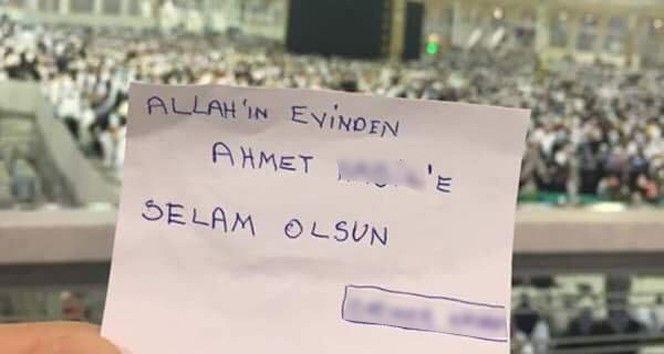 ALLAH'IN EVİNDEN
AHMET 'E
SELAM OLSUN